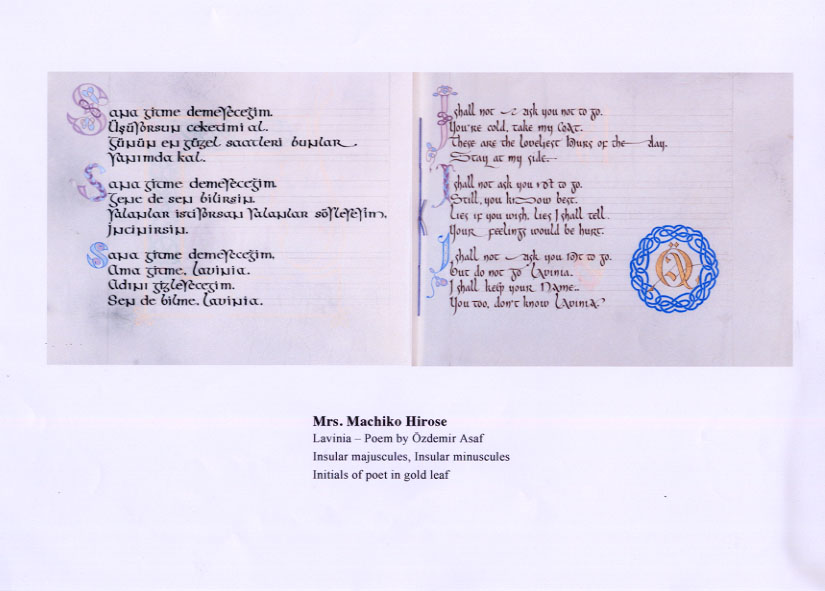 Sana gitme demeyeceğim.
Üşüyorsun ceketimi al.
Günün en güzel saatleri bunlar.
Yanımda kal.
Sana gitme demeyeceğim.
Gene de sen bilirsin.
Yalanlar istiyorsan Yalanlar söyleyeyim,
İncinirsin.
Sana gitme demeyeceğim,
Ama gitme, Lavinia.
Adını gizleyeceğim.
Sen de bilme, Lavinia.
I shall not ask you not to go.
You're cold, take my coat.
These are the loveliest hours of the day.
Stay at my side.
I shall not ask you not to go.
Still, you know best.
Lies if you wish, lies I shall tell.
Your feelings would be hurt.
I shall not ask you not to go.
But do not go Lavinia.
I shall keep your Name..
You too, don't know Lavinia.
Mrs. Machiko Hirose
Lavinia – Poem by Özdemir Asaf
Insular majuscules, Insular minuscules
Initials of poet in gold leaf